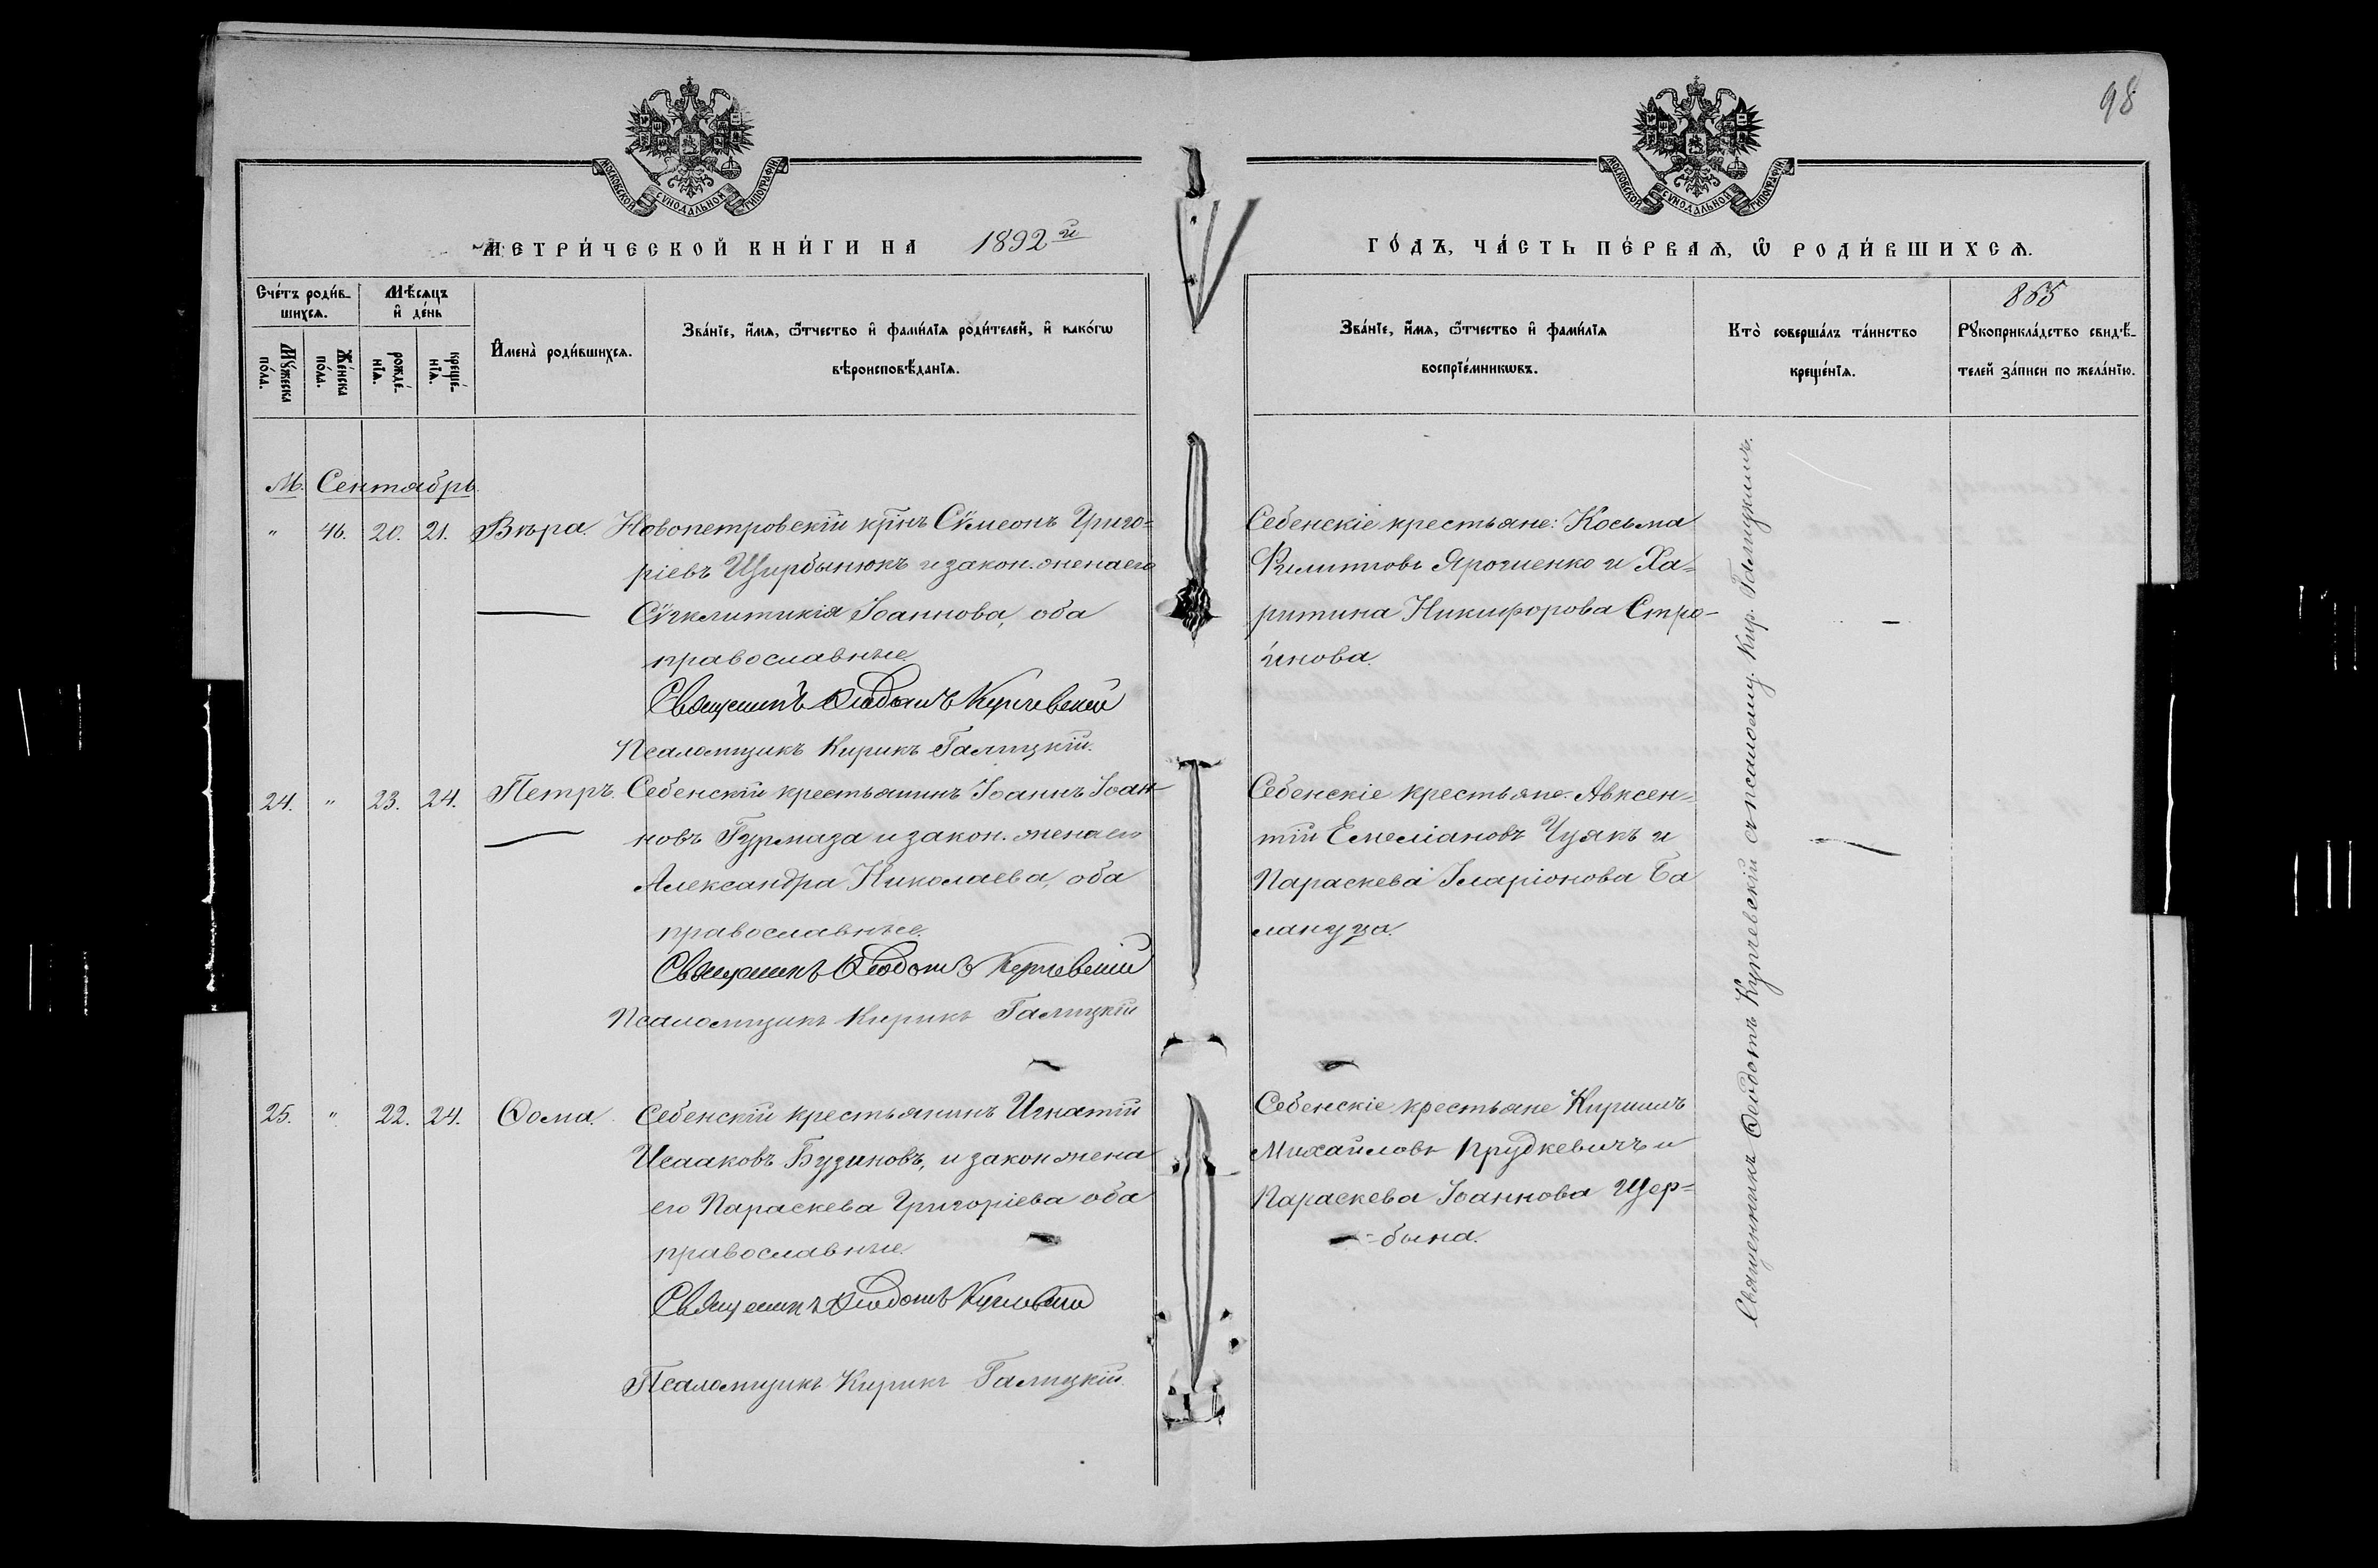 98
МОСКОВСКОЙ СѴНОДАЛЬНОЙ ТИПОГРАФІИ
МОСКОВСКОЙ СѴНОДАЛЬНОЙ ТИПОГРАФІИ
МЕТРИ́ЧЕСКОЙ КНИ́ГИ НА 1892 й
ГО́ДЪ, ЧА́СТЬ ПЕ́РВАѦ, Ѿ РОДИ́ВШИХСѦ.
Сче́тъ роди́в-
шихсѧ.
Мѣ́сѧцъ
и҆ де́нь
Мꙋ́жеска
по́ла.
Же́нска
по́ла.
рожде́-
нїѧ.
креще́-
нїѧ.
И҆мена̀ роди́вшихсѧ.
Зва́нїе, и҆́мѧ, ѻ҆́тчество и҆ фами́лїѧ роди́телей, и҆ како́гѡ
вѣроисповѣ́данїѧ.
Зва́нїе, и҆́мѧ, ѻ҆́тчество и҆ фами́лїѧ
воспрїе́мникѡвъ.
Кто̀ соверша́лъ та́инство
креще́нїѧ.
865
Рꙋкоприкла́дство свидѣ́-
телей за́писи по жела́нїю.
М. Сентябрь.
" 46. 20. 21. Вѣра. Новопетровскій крнъ Сѵмеонъ Григо=
ріевъ Щирбынюкъ и закон. жена его
Сѵгклитикія Іоаннова, оба
православные.
Священникъ Ѳеодотъ Купчевскій
Псаломщикъ Кирикъ Галицкій.
Себенскіе крестьяне: Косьма
Филипповъ Ярошенко и Ха=
ритина Никифорова Стро-
инова.
24. " 23. 24. Петръ. Себенскій крестьянинъ Іоаннъ Іоан-
новъ Гурмаза и закон. жена его
Александра Николаева, оба
православные.
Священникъ Ѳеодотъ Купчевскій
Псаломщикъ Кирикъ Галицкій
Себенскіе крестьяне: Авксен=
тій Емеліановъ Чуякъ и
Параскева Иларіонова Ба
лануца.
25. " 22. 24. Ѳома. Себенскій крестьянинъ Игнатій
Исааковъ Будиновъ, и закон жена
его Параскева Григоріева оба
православные.
Священникъ Ѳеодотъ Купчевскій
Псаломщикъ Кирикъ Галицкій.
Себенскіе крестьяне Кириллъ
Михайловъ Прудкевичъ и
Параскева Іоаннова Щер=
=бына.
Священникъ Ѳеодотъ Купчевскій съ псаломщ. Кир. Галицкимъ.